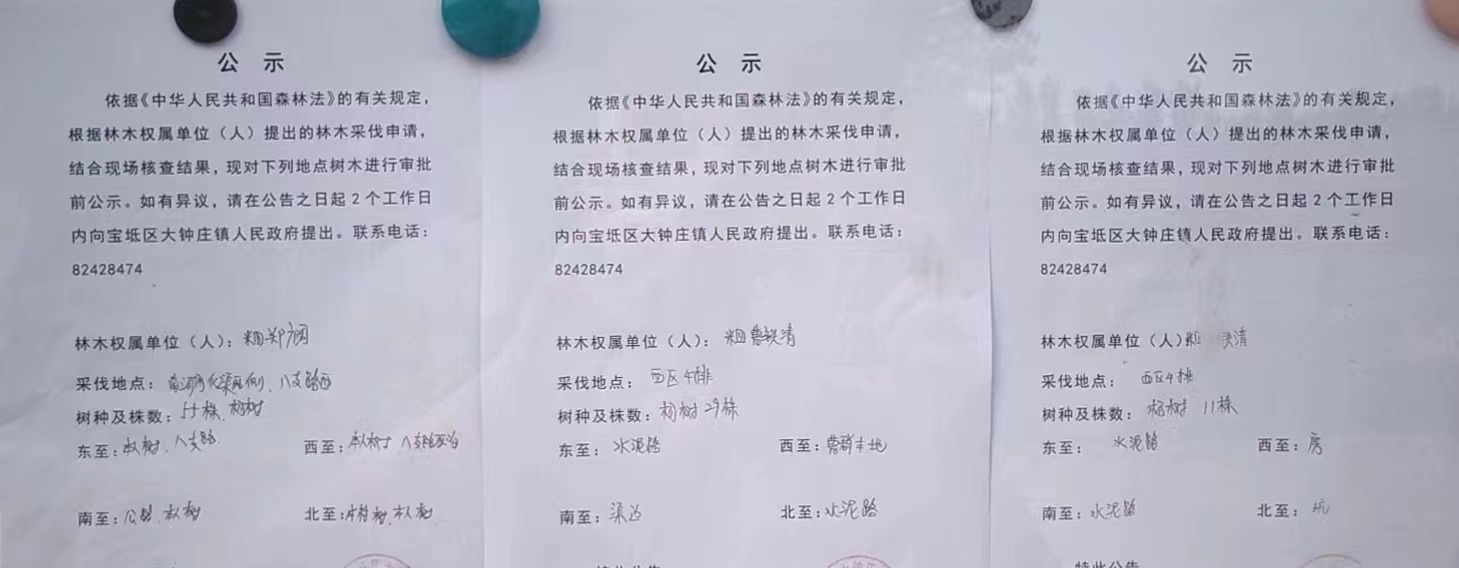 公示
依据《中华人民共和国森林法》的有关规定，
根据林木权属单位（人）提出的林木采伐申请，
结合现场核查结果，现对下列地点树木进行审批
前公示。如有异议，请在公告之日起2个工作日
内向宝坻区大钟庄镇人民政府提出。联系电话：
82428474
林木权属单位（人）：
采伐地点：
树种及株数：55株、杨树
东至：
西至：
南至：公路、
北至：
公示
依据《中华人民共和国森林法》的有关规定，
根据林木权属单位（人）提出的林木采伐申请，
结合现场核查结果，现对下列地点树木进行审批
前公示。如有异议，请在公告之日起2个工作日
内向宝坻区大钟庄镇人民政府提出。联系电话：
82428474
林木权属单位（人）：
采伐地点：西区4排
树种及株数：杨树29株
东至：水泥路
西至：
南至：渠边
北至：水泥路
公示
依据《中华人民共和国森林法》的有关规定，
根据林木权属单位（人）提出的林木采伐申请，
结合现场核查结果，现对下列地点树木进行审批
前公示。如有异议，请在公告之日起2个工作日
内向宝坻区大钟庄镇人民政府提出。联系电话：
82428474
林木权属单位（人）
采伐地点：西区4排
树种及株数：杨树 11株
东至：水泥路
西至：房
南至：水泥路
北至：坑
特此公告